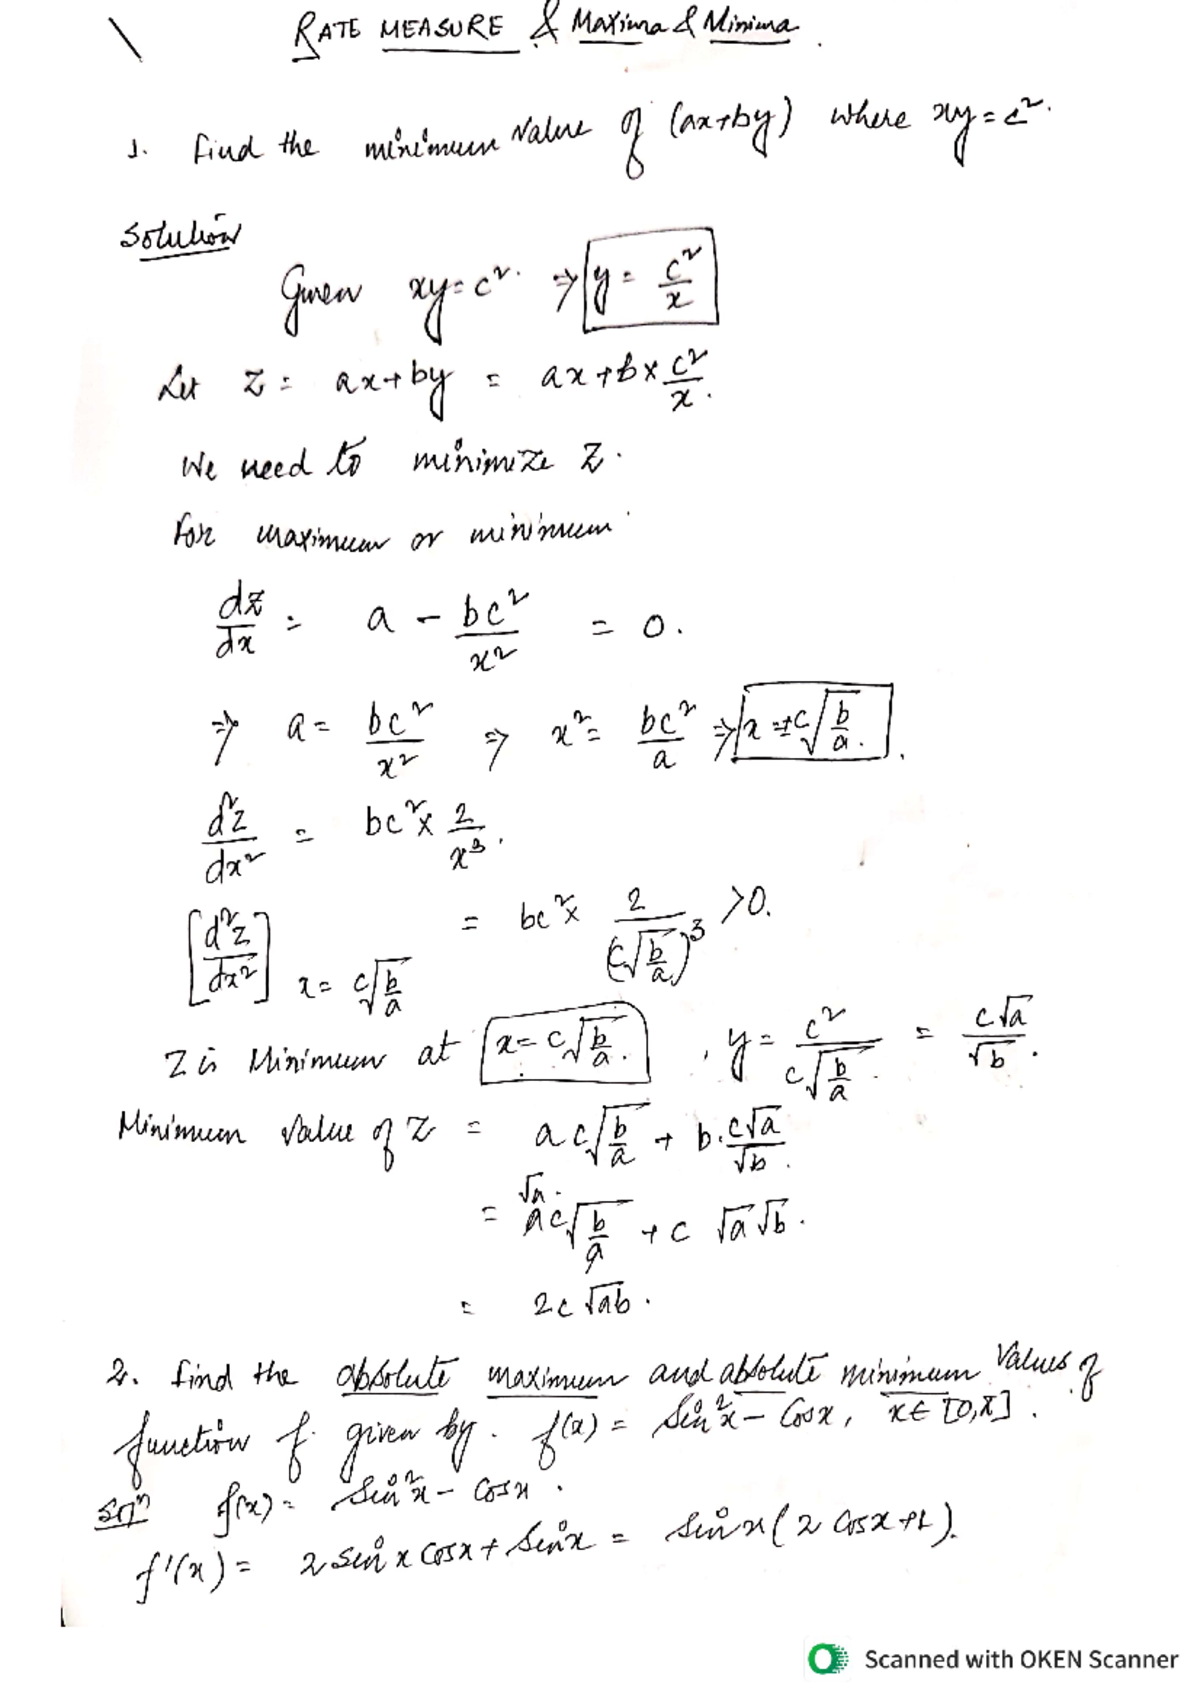 RATE MEASURE & Maxima & Minima.
1. Find the minimum Value of (ax+by) where xy=c².
Solution
Given xy=c². ⇒ y = c²/x
Let z = ax+by = ax+b×c²/x.
We need to minimize z.
For maximum or minimum
dz/dx = a - bc²/x² = 0.
⇒ a = bc²/x² ⇒ x² = bc²/a ⇒ x = ±c√(b/a).
d²z/dx² = bc²× 2/x³.
[d²z/dx²] x = c√(b/a) = bc²× 2/(c√(b/a))³ >0.
Z is Minimum at x = c√(b/a). , y = c²/(c√(b/a)) = c√a/√b.
Minimum Value of Z = ac√(b/a) + b.c√a/√b.
= √a. ac√(b/a) + c √a√b.
= 2c√ab.
2. Find the absolute maximum and absolute minimum Values of
function f. given by. f(x) = Sin²x - Cosx, x∈ [0,π].
Solⁿ f(x) = Sin²x - Cosx.
f'(x) = 2 Sin x Cosx + Sinx = Sinx(2 Cosx+1).
Scanned with OKEN Scanner